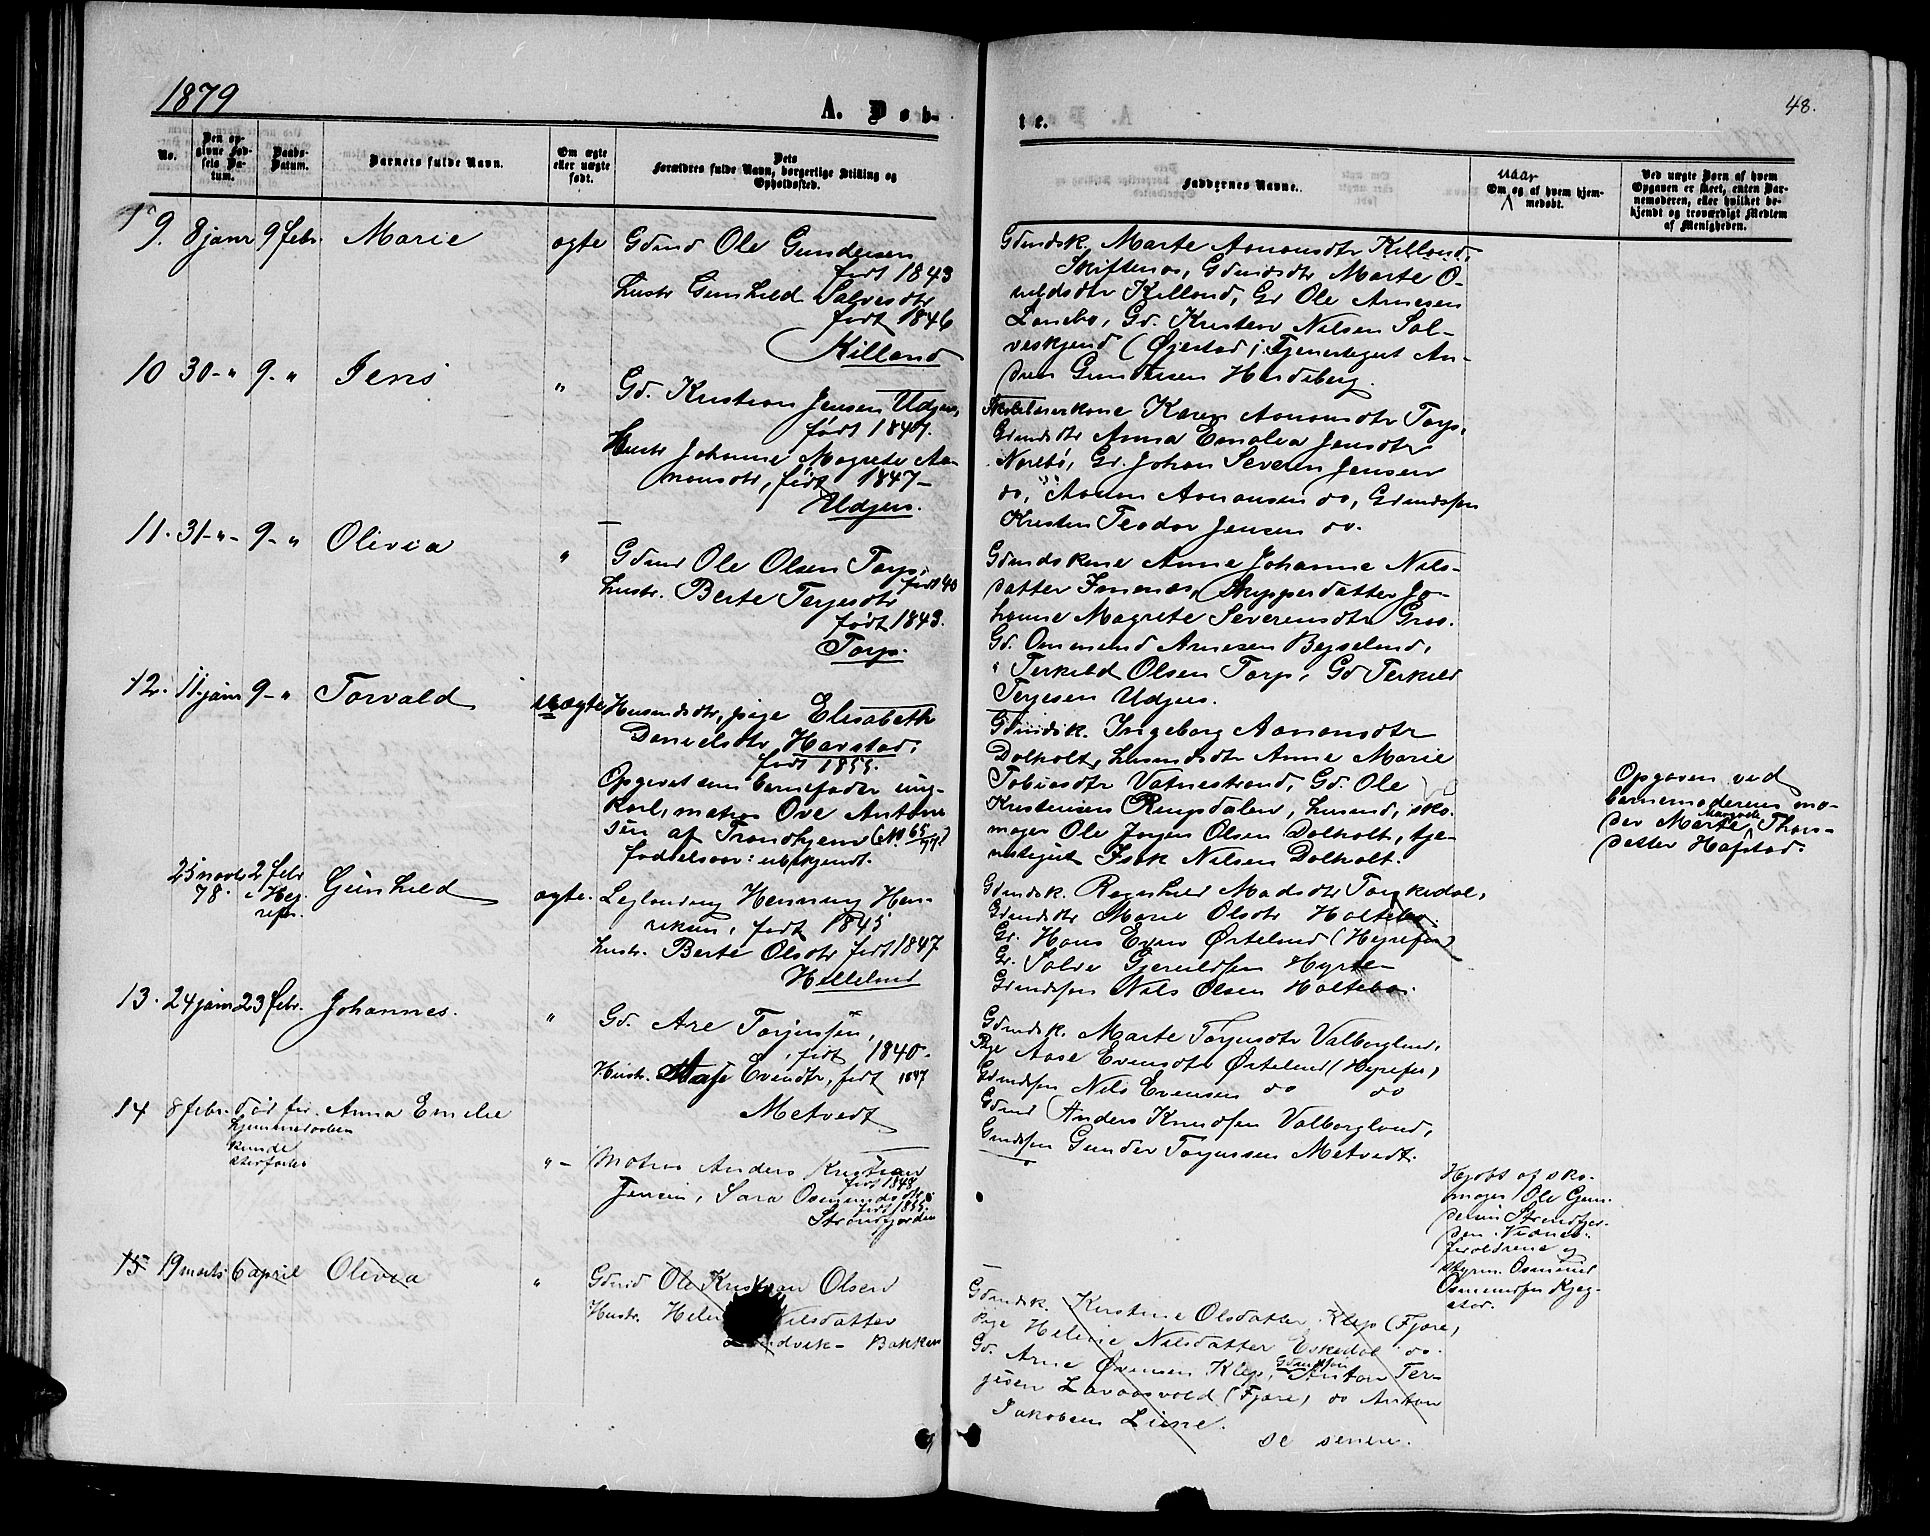 1879
A. Døb-
te.
48.
No.
Den op-
givne Fød-
sels Da-
tum.
Daabs-
Datum.
Barnets fulde Navn.
Om ægte
eller uægte
født.
Dets
Forældres fulde Navn, borgerlige Stilling og
Opholdssted.
Faddernes Navne.
naar
Om og af hvem hjem-
medøbt.
Ved uægte Børn af hvem
Opgaven er skeet, enten Bar-
nemoderen, eller hvilket be-
kjendt og troværdigt Medlem
af Menigheden.
9. 8 janr 9 febr. Marie ægte
Gdmd Ole Gundersen
født 1843
hustr Gunhild Salvesdtr
født 1846
Killand
Gdmdsk. Marte Aanonsdtr Killand,
Skiftenes, Gdmdsdtr Marte O-
Killand, Gd Ole Arnesen
Lonebo, Gd. Kristen Nilsen Sal-
veskjend (Øjestad), Tjenestegut An-
dreas Gundersen Heidsberg.
10 30-" 9-" Jens "
Gd. Kristian Jensen Udjus,
født 1847.
Hustr Johanne Magrete Aa-
nonsdtr, født 1847-
Udjus.
Skolelærerkone Karen Aanonsdtr Torp,
Gdmdsdtr Anna Emalia Jensdtr
Norebø, Gd. Johan Severin Jensen
do, " Aanon Aanonsen do, Gdmdssøn
Kristen Teodor Jensen do.
11. 31-"- 9-" Olivia "
Gdmd Ole Olsen Torp,
født 40
hustr. Berte Terjesdtr
født 1843.
Torp.
Gdmdskone Anne Johanne Nils-
datter Imenes, Skipperdatter Jo-
hanne Magrete Severinsdtr Groos.
Gd. Ommund Arnesen Bejselund,
" Terkild Olsen Torp, Gd Terkild
Terjesen Udjus.
12. 11 janr 9-" Torvald uægte
Husmdsdtr, pige Elisabeth
Danielsdtr Havstad,
født 1855.
Opgivet som barnefader ung-
karl, matros Ove Anton
sen af Trondhjem (N. 65/77)
fødselsaar: ubekjendt.
Gdmdsk. Ingeborg Aanonsdtr
Dolholt, husmdsdtr Anne Marie
Tobiasdtr Vatnestrand, Gd. Ole
Kristensen Ringdalen, husmd, sko-
mager Ole Jørgen Olsen Dolholt, tje-
nestegut Isak Nilsen Dolholt.
Opgaven ved
barnemoderens mo-
der Marte Margrete Thors-
datter Hafstad.
25 novbr 2 febr Gunhild ægte.
78. i Hej
refos
Leglænding Henning Hen-
riksen, født 1845
hustr. Berte Olsdtr født 1847
Hellelund
Gdmdsk. Ragnhild Madsdtr Torskedal,
Gdmdsdtr Marie Olsdtr Holtebo.
Gd. Hans Even Ørtelund (Hejrefos)
Gd. Salve Gjeruldsen
Gdmdssøn Nils Olsen Holtebo.
13. 24 janr 23 febr. Johannes. "
Gd. Are Torjussen,
, født 1840-
Hustr. Aase Evensdtr, født 1847
Metvedt
Gdmdsk. Marte Torjusdtr Valborglund,
Pige Aase Evensdtr Ørtelund (Hejrefos)
Gdmdssøn Nils Evensen do do
Gdmd Anders Knudsen Valborglund,
Gmdssøn Gunder Torjussen Metvedt.
14 8 febr. død før Anna Emelie "-
hjemmedaaben
kunde
stadfæstes
Matros Anders Kristian
født 1848
Jensen, Sara Osmundsdtr
født 1855.
Strandfjorden
Hjdøbt af sko-
mager Ole Gun-
dersen Strandfjor-
den. Vidner:
forældrene og
styrm. Osmund
Osmundsen
15 19 marts 6 april Olivia "
Gdmd Ole Kristian Olsen
Hustr. Helene Nilsdatter
Landvik- Bakken
Gdmdsk. Kirstine Olsdatter Klep (Fjære)
Pige Helene Nilsdatter Eskedal do.
Gd. Arne Øvensen Klep, Gdmdssøn Anton Ter-
jesen Lavaasvold (Fjære) do Anton
Jakobsen Liene.
se senere.